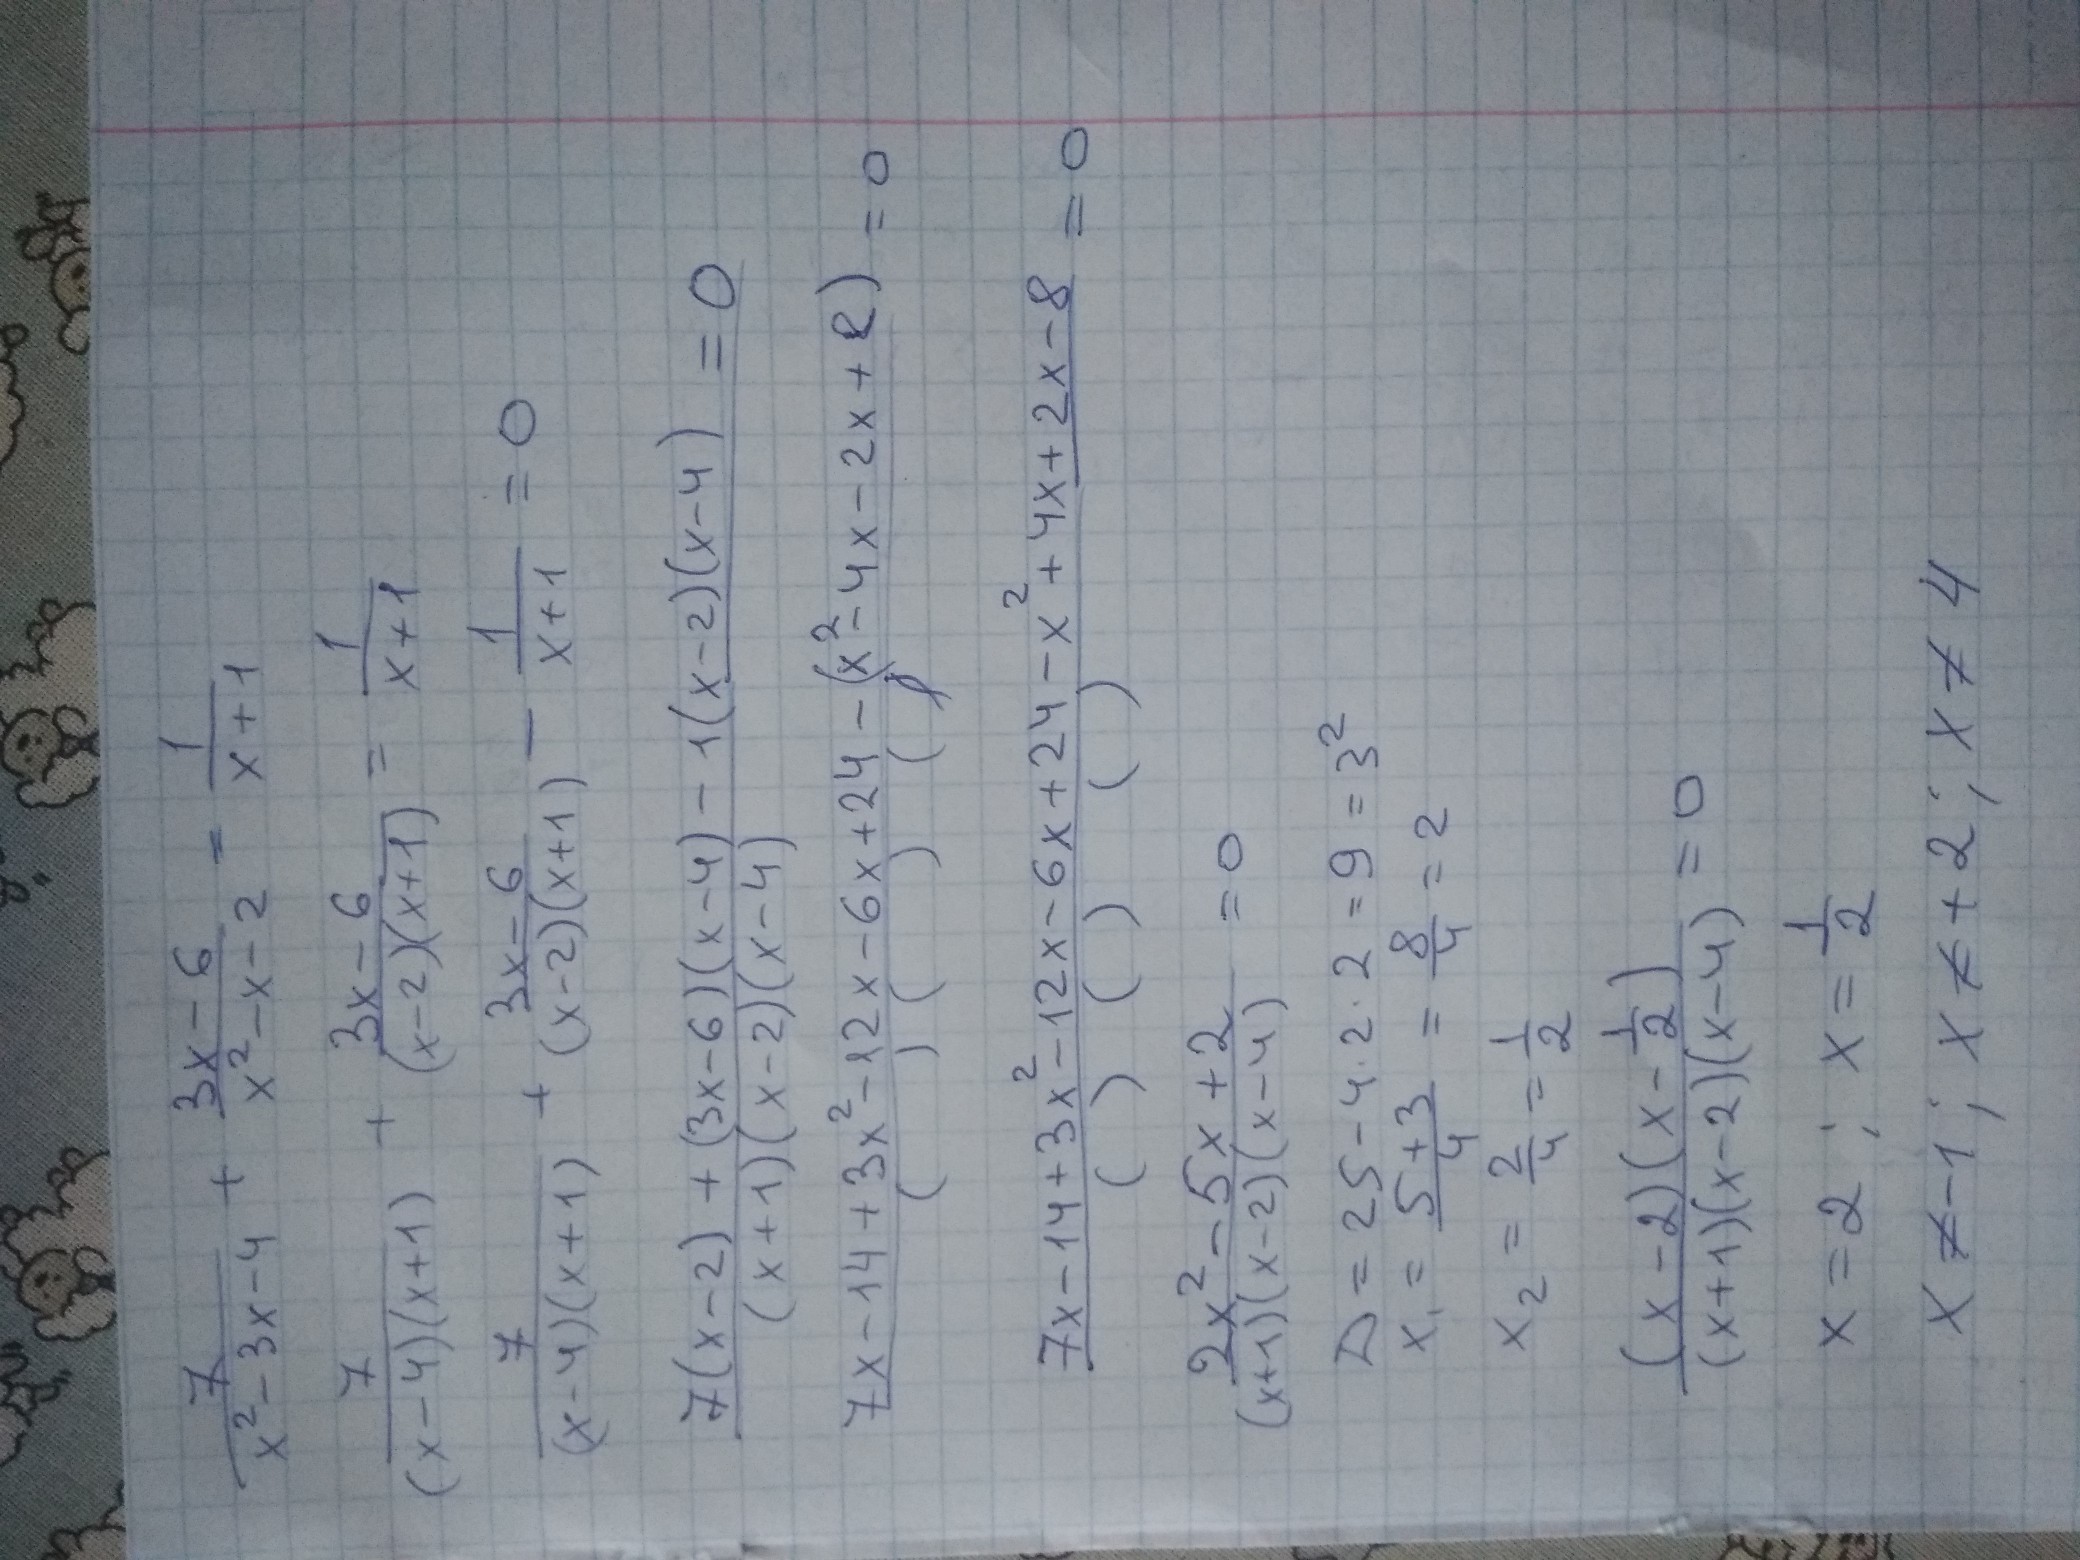 7/(x²-3x-4) + (3x-6)/(x²-x-2) = 1/(x+1)
7/((x-4)(x+1)) + (3x-6)/((x-2)(x+1)) = 1/(x+1)
7/((x-4)(x+1)) + (3x-6)/((x-2)(x+1)) - 1/(x+1) = 0
(7(x-2) + (3x-6)(x-4) - 1(x-2)(x-4))/((x+1)(x-2)(x-4)) = 0
(7x-14+3x²-12x-6x+24-(x²-4x-2x+8))/(( )( )( )) = 0
(7x-14+3x²-12x-6x+24-x²+4x+2x-8)/(( )( )( )) = 0
(2x²-5x+2)/((x+1)(x-2)(x-4)) = 0
D = 25-4·2·2 = 9 = 3²
x₁ = (5+3)/4 = 8/4 = 2
x₂ = 2/4 = 1/2
((x-2)(x-1/2))/((x+1)(x-2)(x-4)) = 0
x = 2 ; x = 1/2
x ≠ -1 ; x ≠ +2 ; x ≠ 4